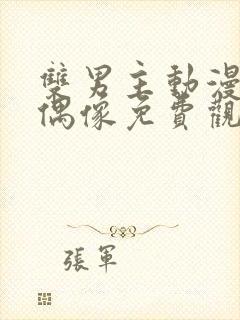 雙男主動漫
偶像免費觀
張軍